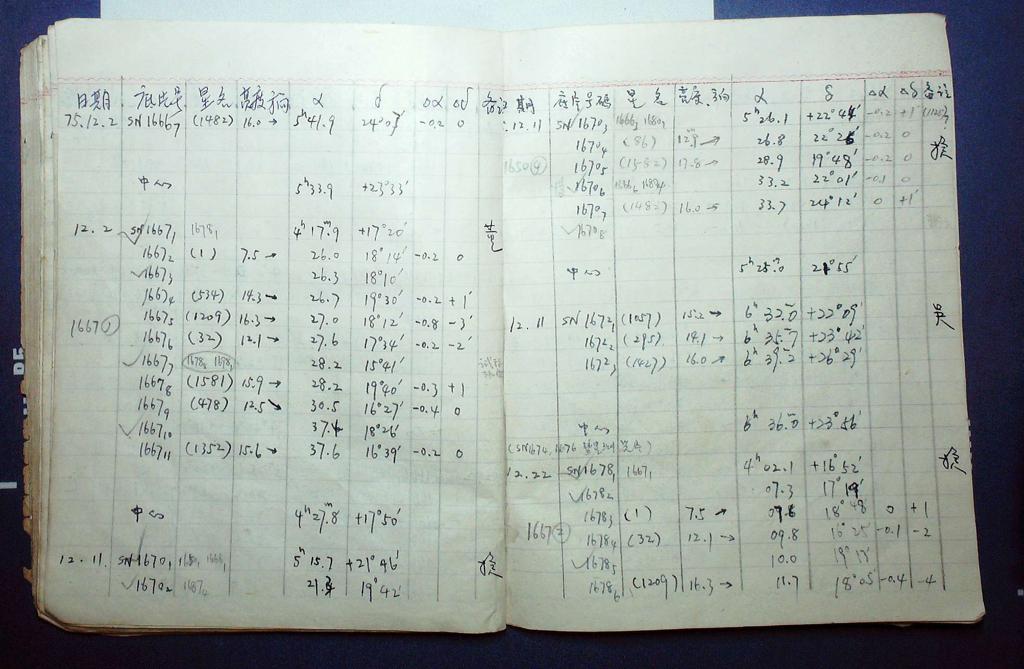 日期 底片号 星名 亮度 方向 α δ Δα Δδ 备注
75.12.2 SN1666₇ (1482) 16.0→ 5ʰ41.9 24°07′ -0.2 0
中心 5ʰ33.9 +23°33′
12.2 SN1667₁ 1678₁ 4ʰ17ᵐ.9 +17°20′
1667₂ (1) 7.5→ 26.0 18°14′ -0.2 0
1667₃ 26.3 18°10′
1667₄ (534) 14.3→ 26.7 19°30′ -0.2 +1′
1667₅ (1209) 16.3→ 27.0 18°12′ -0.8 -3′
1667① 1667₆ (32) 12.1→ 27.6 17°34′ -0.2 -2′
1667₇ 28.2 15°41′
1667₈ (1581) 15.9→ 28.2 19°40′ -0.3 +1
1667₉ (478) 12.5↘ 30.5 16°27′ -0.4 0
1667₁₀ 37.4 18°26′
1667₁₁ (1352) 15.6→ 37.6 16°39′ -0.2 0
中心 4ʰ27ᵐ.8 +17°50′
12.11 SN1670₁ 5ʰ15.7 +21°46′
1670₂ 21.3 19°42′
日期 底片号码 星名 亮度 方向 α δ Δα Δδ 备注
12.11 SN1670₃ 5ʰ26.1 +22°44′ -0.2 +1′
1670₄ (86) 12.9→ 26.8 22°25′ -0.2 0
1670₅ (1532) 17.8→ 28.9 19°48′ -0.2 0
1670₆ 33.2 22°01′ -0.1 0
1670₇ (1482) 16.0→ 33.7 24°12′ 0 +1′
1670₈
中心 5ʰ25ᵐ.0 21°55′
12.11 SN1672₁ (1057) 15.2→ 6ʰ32ᵐ.0 +22°09′ 吴
1672₂ (295) 14.1→ 6ʰ35ᵐ.7 +23°42′
1672₃ (1427) 16.0→ 6ʰ39ᵐ.2 +26°29′
中心 6ʰ36ᵐ.0 +23°56′
(SN1674, 1676
12.22 SN1678₁ 1667₁ 4ʰ02.1 +16°52′
1678₂ 07.3 17°19′
1678₃ (1) 7.5→ 09.6 18°48 0 +1
1667② 1678₄ (32) 12.1→ 09.8 16°25′ -0.1 -2
1678₅ 10.0 19°13′
1678₆ (1209) 16.3→ 11.7 18°05′ -0.4 -4